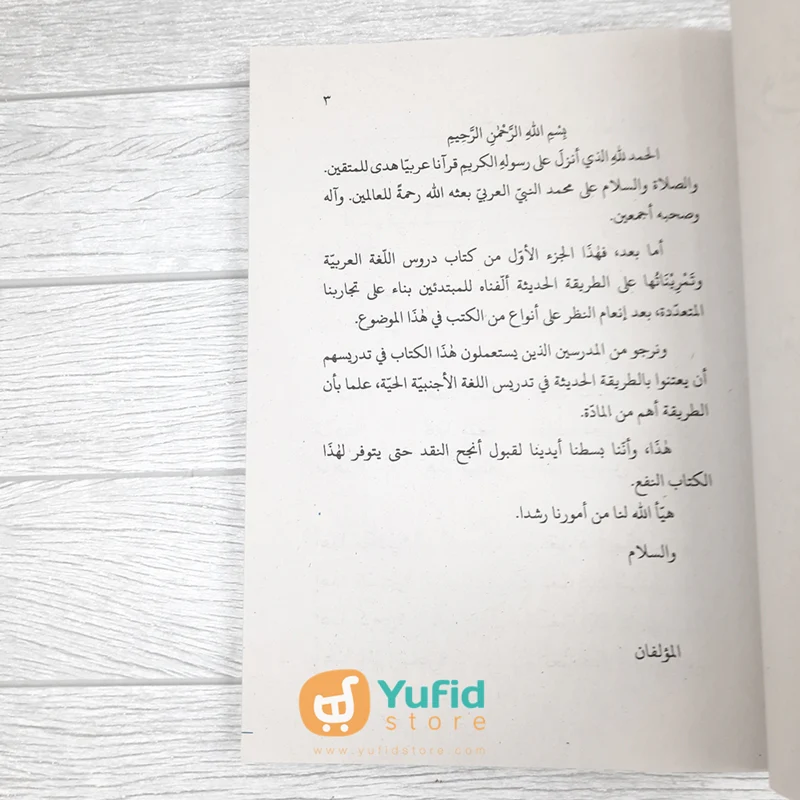 ٣
بِسْمِ اللهِ الرَّحْمٰنِ الرَّحِيمِ
الحمد للهِ الذي أنزلَ على رسولهِ الكريمِ قرآنا عربيّا هدى للمتقين.
والصلاة والسلام على محمد النبيّ العربيّ بعثه الله رحمةً للعالمين. وآله
وصحبه أجمعين.
أما بعد، فهٰذَا الجزء الأوّل من كتاب دروس اللّغة العربيّة
وتَمْرِيْنَاتُها على الطريقة الحديثة ألّفناه للمبتدئين بناء على تجاربنا
المتعدّدة، بعد إنعام النظر على أنواع من الكتب في هٰذَا الموضوع.
ونرجو من المدرسين الذين يستعملون هٰذَا الكتاب في تدريسهم
أن يعتنوا بالطريقة الحديثة في تدريس اللغة الأجنبيّة الحيّة، علما بأن
الطريقة أهم من المادّة.
هٰذَا، وأنّنا بسطنا أيدينا لقبول أنجح النقد حتى يتوفر لهٰذَا
الكتاب النفع.
هيّأ الله لنا من أمورنا رشدا.
والسلام
المؤلفان
Yufid
store
www.yufidstore.com